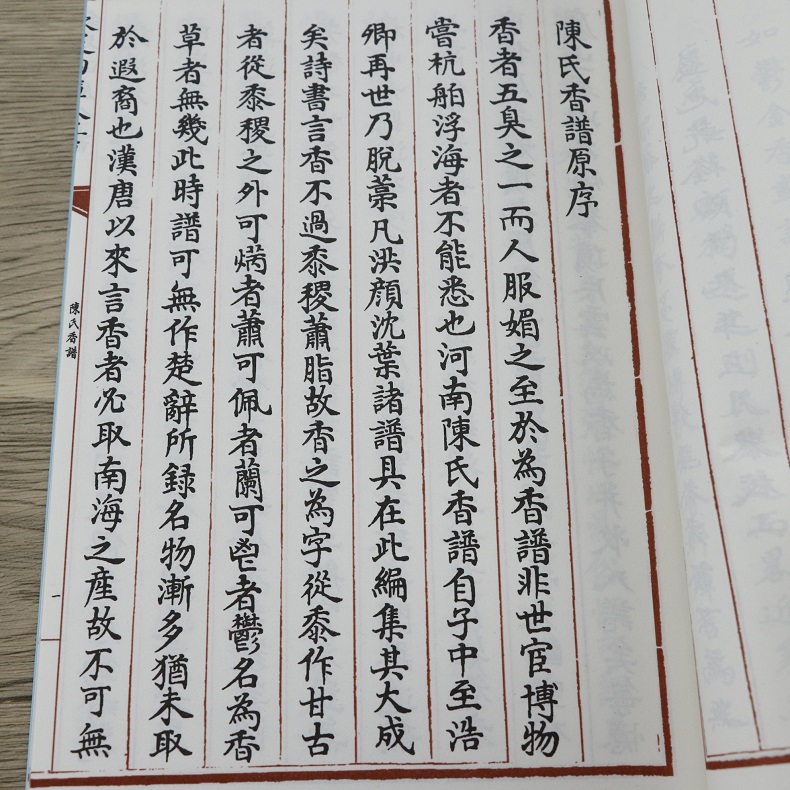 陳氏香譜原序
香者五臭之一而人服媚之至於為香譜非世宦博物
嘗杭舶浮海者不能悉也河南陳氏香譜自子中至浩
卿再世乃脫藁凡洪顔沈葉諸譜具在此編集其大成
矣詩書言香不過黍稷蕭脂故香之為字從黍作甘古
者從黍稷之外可焫者蕭可佩者蘭可鬯者鬱名為香
草者無幾此時譜可無作楚辭所録名物漸多猶未取
於遐裔也漢唐以來言香者必取南海之産故不可無
陳氏香譜
一